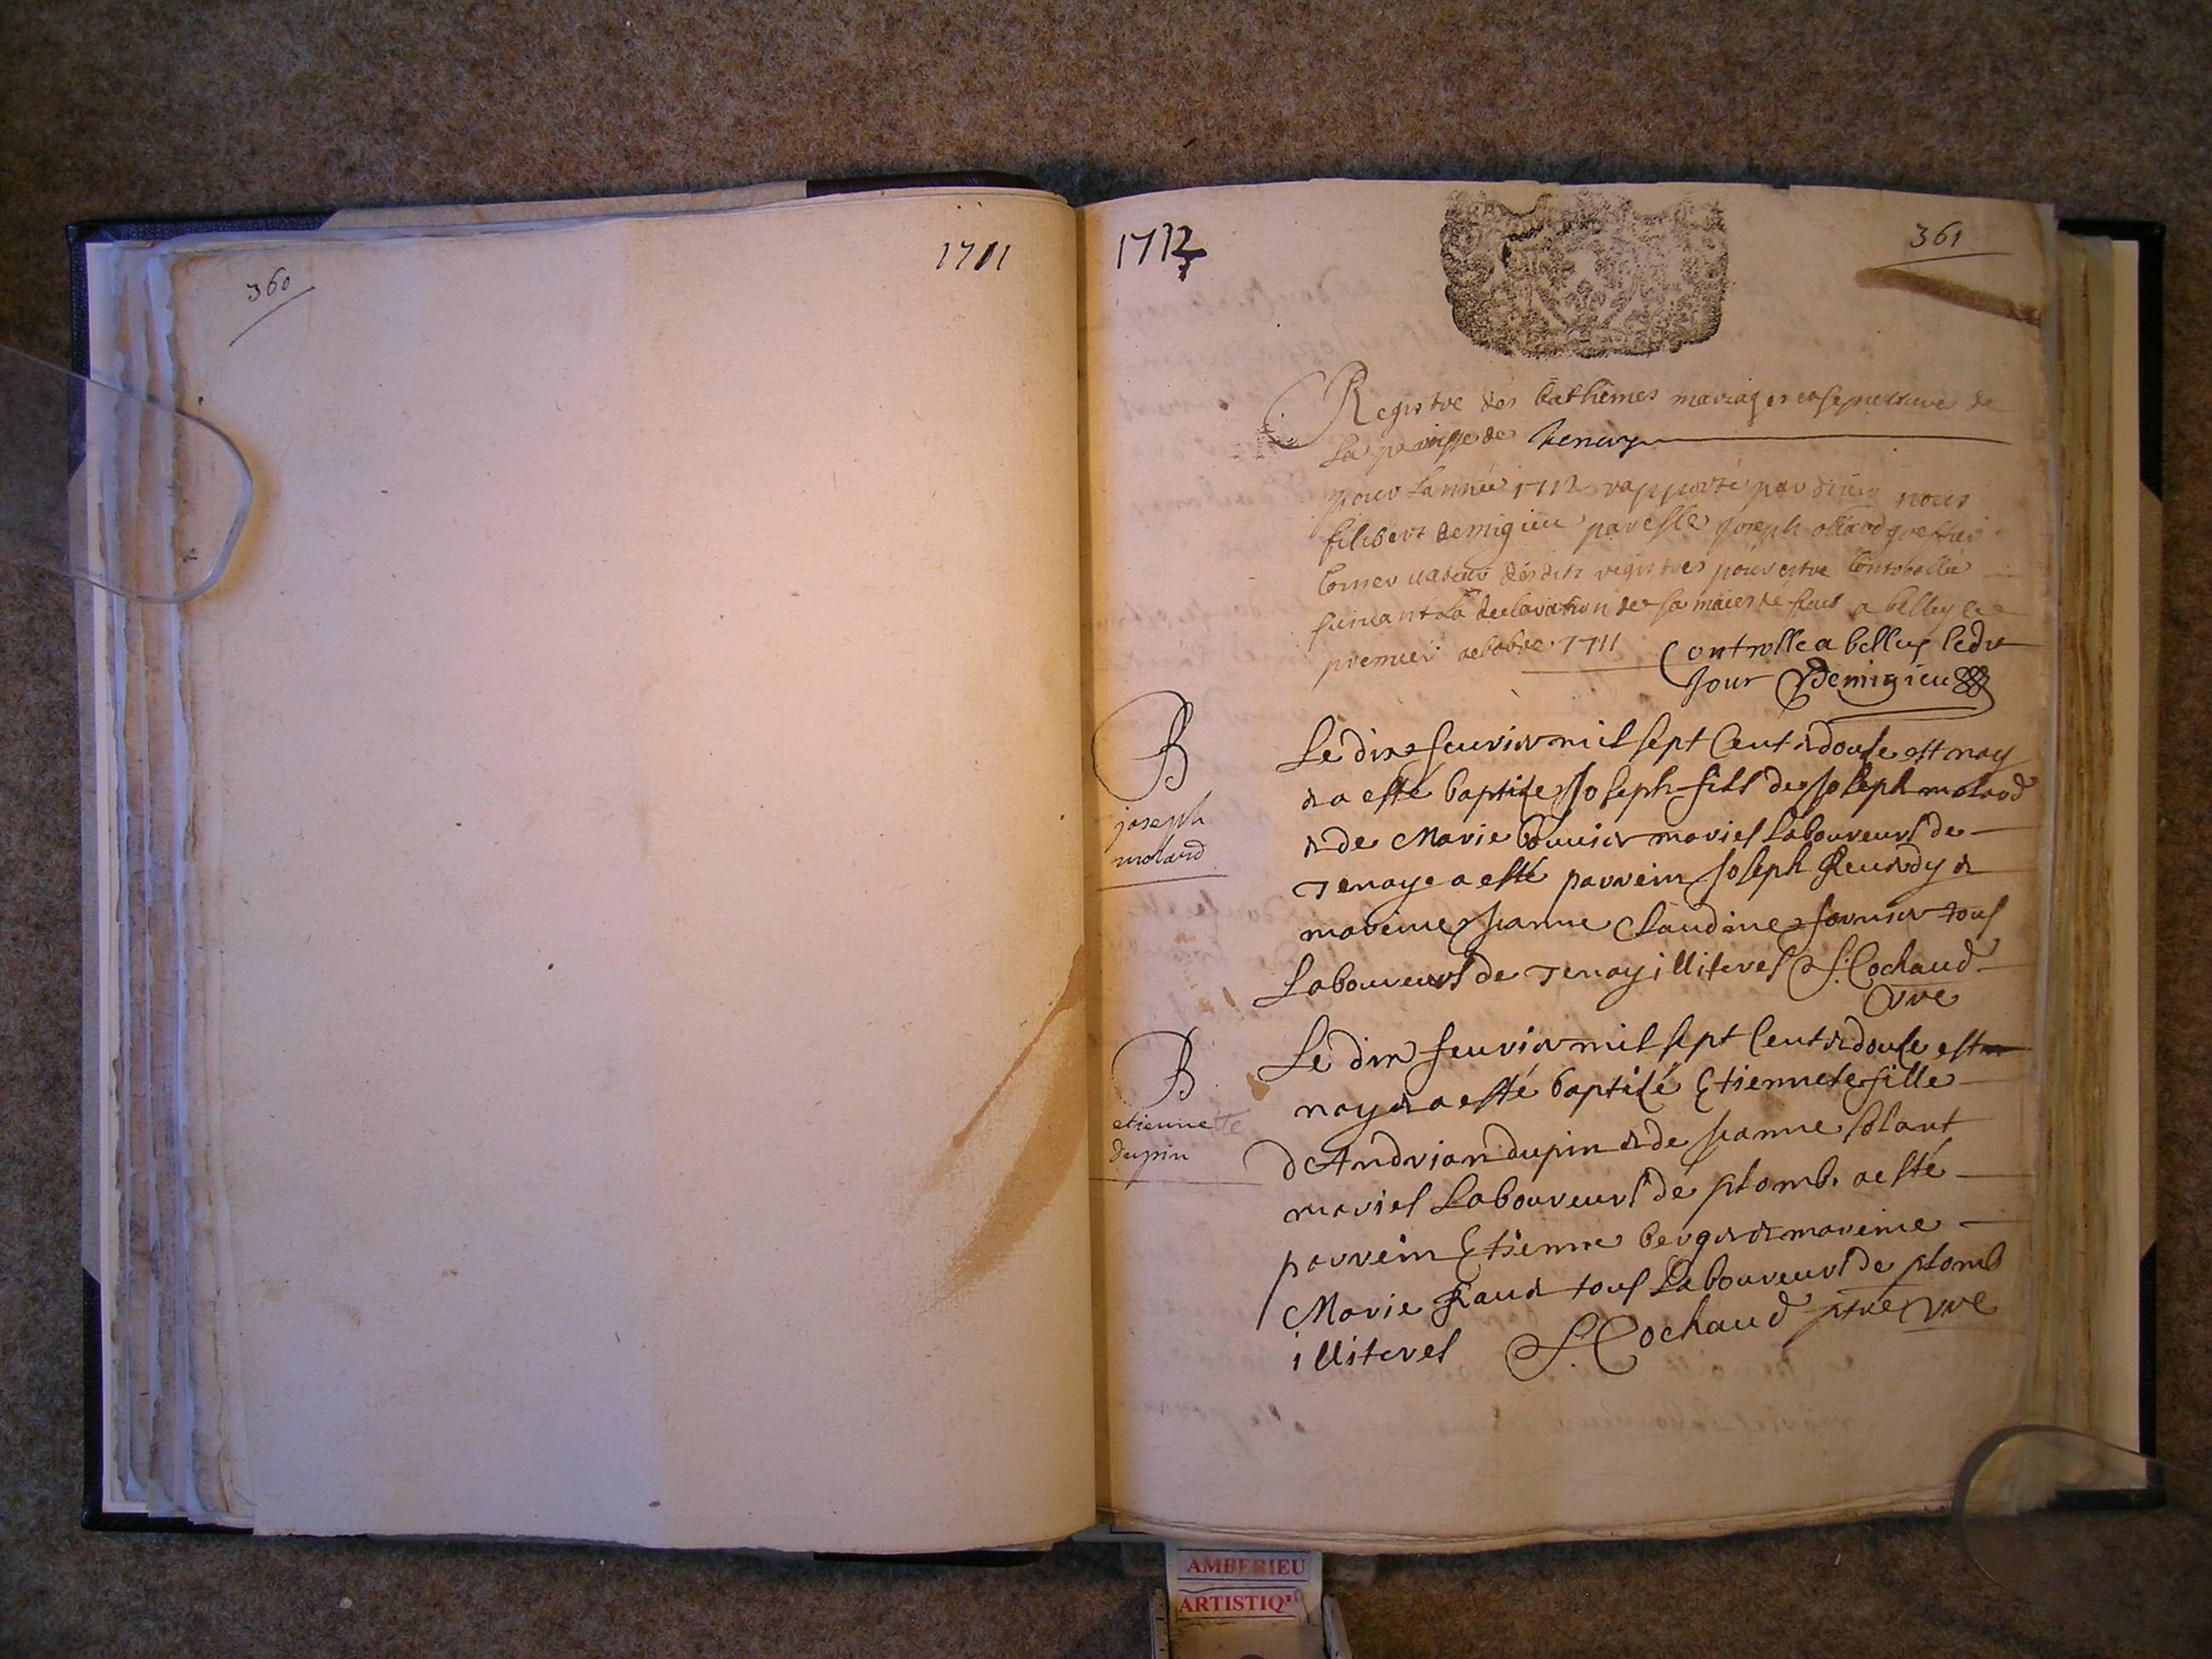 360
1711
1712
361
Registre des bathêmes mariages et sepulture de
La paroisse de Tenay
pour Lannée 1712 rapporté par nous
filibert demigieu par Joseph greffier
Conservateur desdits registres pour estre Controllée
suivant La declaration de sa maiesté fait a belley le
premier octobre 1711 Controlle a belley ledit
Jour Demigieu
B
joseph
molard
Le dix feurier mil sept Cent & douse est nay
& a esté baptise Joseph fils de Joseph molard
& de Marie bouuier mariés Laboureurs de
Tenay a esté parrein Joseph &
mareine Jeanne Claudine fornier tous
Laboureurs de Tenay illiterés J. Cochaud
vre
B
etiennette
dupin
Le dix feurier mil sept Cent & douse est
nay & a esté baptisé Etiennete fille
d'Andrian dupin & de Jeanne
mariés Laboureurs de plomb. a esté
parrein Etienne berger & mareine
Marie tous Laboureurs de plomb
illiterés J. Cochaud ptre vre
AMBERIEU
ARTISTIQ